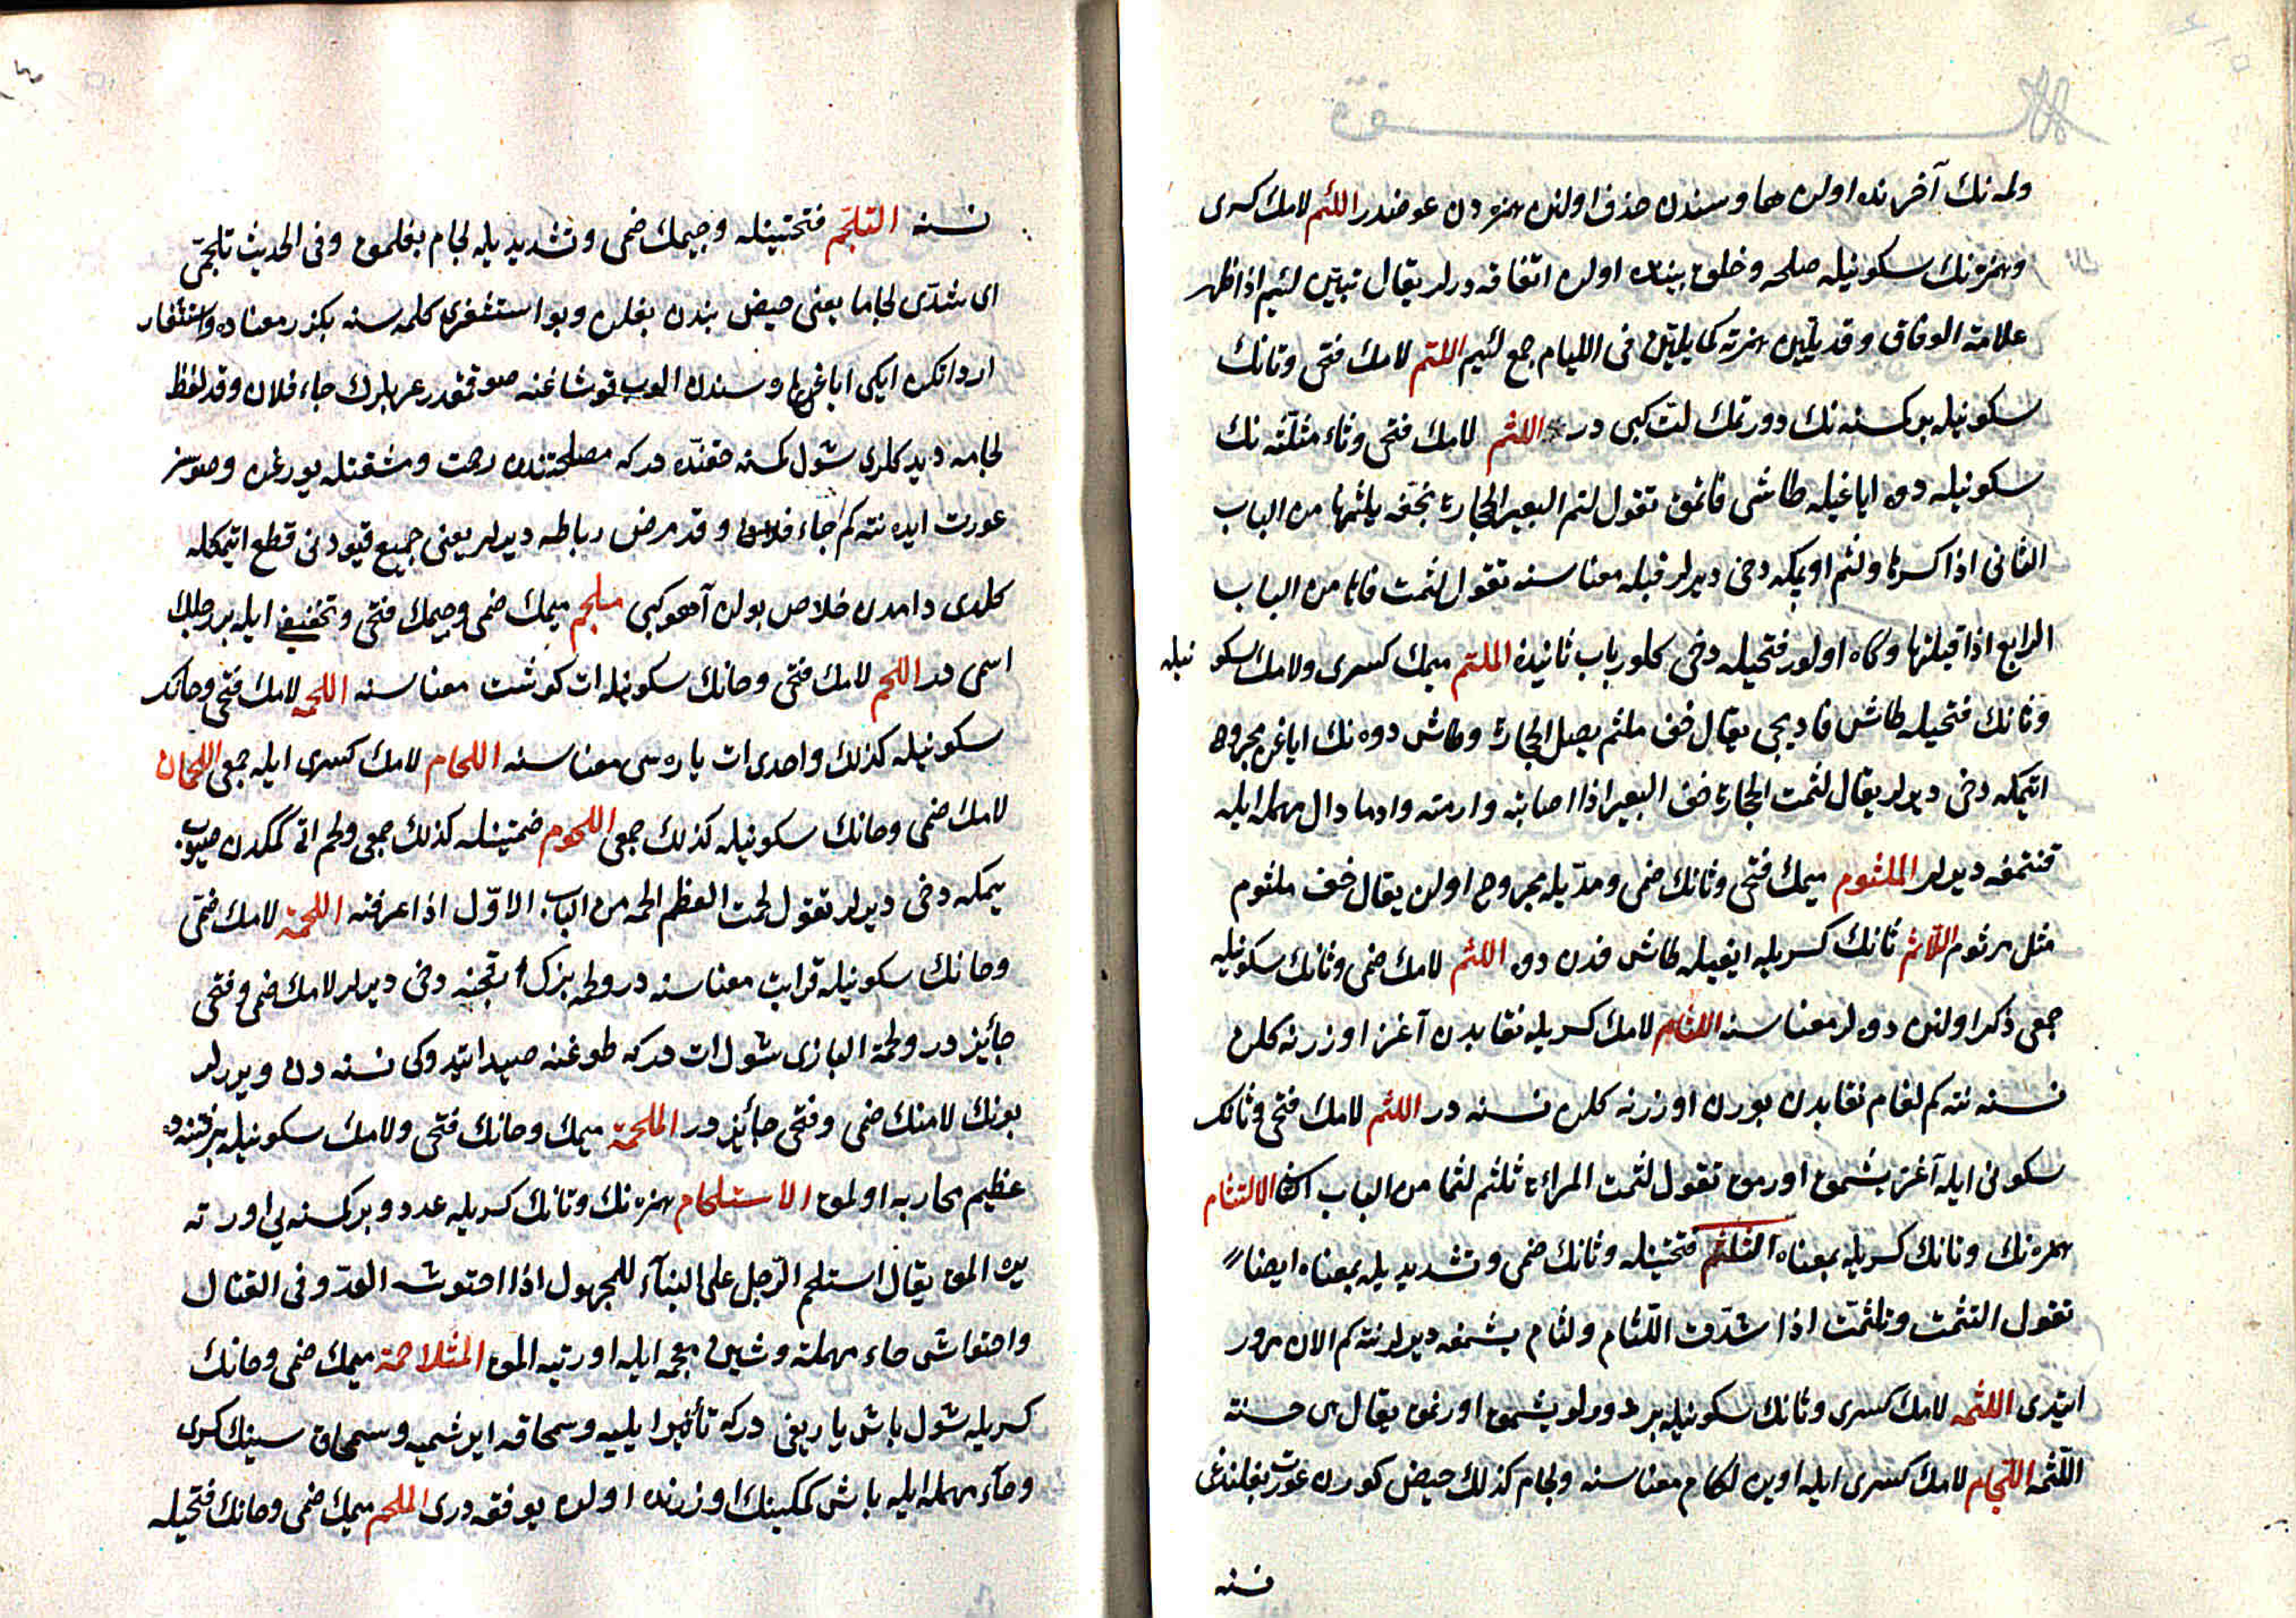 ولمه نك آخرنده اولن ها وسندن حذف اولنن همزه دن عوضدر اللئم لامك كسرى
وهمزه نك سكونيله صلحه وخلق بيننده اولن اتفاقه درلر يقال تبيّن لئيم اذا ظهر
علامة الوفاق وقد يليّن همزته كما يليّن فى الليام جمع لئيم اللتم لامك فتحى وتانك
سكونيله بر كسنه نك دورتمك لتّ كبى در اللثم لامك فتحى وثاء مثلّثه نك
سكونيله دوه اياغيله طاشى قاتمق تقول لثم البعير الحجارة بخفّه يلثمها من الباب
الثانى اذا كسرها ولثم اوپمكه دخى ديرلر قبله معناسنه تقول لثمت فاها من الباب
الرابع اذا قبلتها وكاه اولور فتحيله دخى كلور باب ثانيدن الملثم ميمك كسرى ولامك سكونيله
وثانك فتحيله طاش قاديجى يقال خف ملثم يصك الحجارة وطاش دوه نك اياغن مجروح
اتمكه دخى ديرلر يقال لثمت الحجارة خف البعير اذا اصابته وادمته وادما دال مهمله ايله
قنتمغه ديرلر الملثوم ميمك فتحى وثانك ضمى ومدّيله مجروح اولن يقال خف ملثوم
مثل مرثوم اللاثم ثانك كسريله اياغيله طاش قدن دوه اللثم لامك ضمى وثانك سكونيله
جمعى ذكر اولنن دوه لر معناسنه اللثام لامك كسريله نقابدن آغز اوزرنه كلن
نسنه نته كم لفام نقابدن بورن اوزرنه كلن نسنه در اللثم لامك فتحى وثانك
سكونى ايله آغز يشمق اورمق تقول لثمت المراة تلثم لثما من الباب الثانى الالتثام
همزه نك وتانك كسريله بمعناه التلثم فتحتينله وثانك ضمى وتشديديله بمعناه ايضا
تقول التثمت وتلثمت اذا شدّت اللّثام ولثام يشمغه ديرلر نته كم الان مرور
ايتدى اللثمه لامك كسرى وثانك سكونيله بر دورلو يشمق اورنمق يقال هى حسنة
اللّثمه اللّجام لامك كسرى ايله اوين لكام معناسنه ولجام كذلك حيض كورن عورت بغلندغى
نسنه
نسنه التلجّم فتحتينله وجيمك ضمى وتشديديله لجام بغلمق وفى الحديث تلجّمى
اى شدّى لجاما يعنى حيض بندن بغلن وبو استثفرى كلمه سنه بكزر معناده واستثفار
اردا تكن ايكى اياغى اره سندن الوب قوشاغنه صوقمقدر عربلرك جاء فلان وقد لفظ
لجامه ديدكلرى شول كسنه حقنده در كه مصلحتندن زحمت ومشقتله يورغن وصوسز
عورت ايده نته كم جاء فلان وقد قرض رباطه ديرلر يعنى جميع قيودنى قطع اتمكله
كلدى دامدن خلاص بولن آهو كبى ملجم ميمك ضمى وجيمك فتحى وتخفيفى ايله بر رجلك
اسمى در اللحم لامك فتحى وحانك سكونيله ات كوشت معناسنه اللحمه لامك فتحى وحانك
سكونيله كذلك واحدى ات پاره سى معناسنه اللحام لامك كسرى ايله جمعى اللحمان
لامك ضمى وحانك سكونيله كذلك جمعى اللحوم ضمتينله كذلك جمعى ولحم اتى كمكدن صيوب
يمكه دخى ديرلر تقول لحمت العظم الحمه من الباب الاوّل اذا عرفته اللحمة لامك ضمى
وحانك سكونيله قرابت معناسنه در ولحمه بزك ارقجنه دخى ديرلر لامك ضمى وفتحى
جائز در ولحمة البازى شول ات در كه طوغنه صيد ايتدوكى نسنه دن ويرلر
بونك لامنك ضمى وفتحى جائز در الملحمة ميمك وحانك فتحى ولامك سكونيله بر فتنه ده
عظيم محاربه اولمق الاستلحام همزه نك وتانك كسريله عدو بر كسنه يى اورته
يره المق يقال استلحم الرّجل على البناء للمجهول اذا احتوشه العدوّ فى القتال
واحتواش حاء مهمله وشين معجمه ايله اورتيه المق المتلاحمة ميمك ضمى وحانك
كسريله شول باش ياريغى در كه تأثير ايليه وسمحاقه ايرشميه وسمحاق سينك كسرى
وحاء مهمله ايله باش كمكينك اوزرنده اولن يوفقه درى الملحم ميمك ضمى وحانك فتحيله